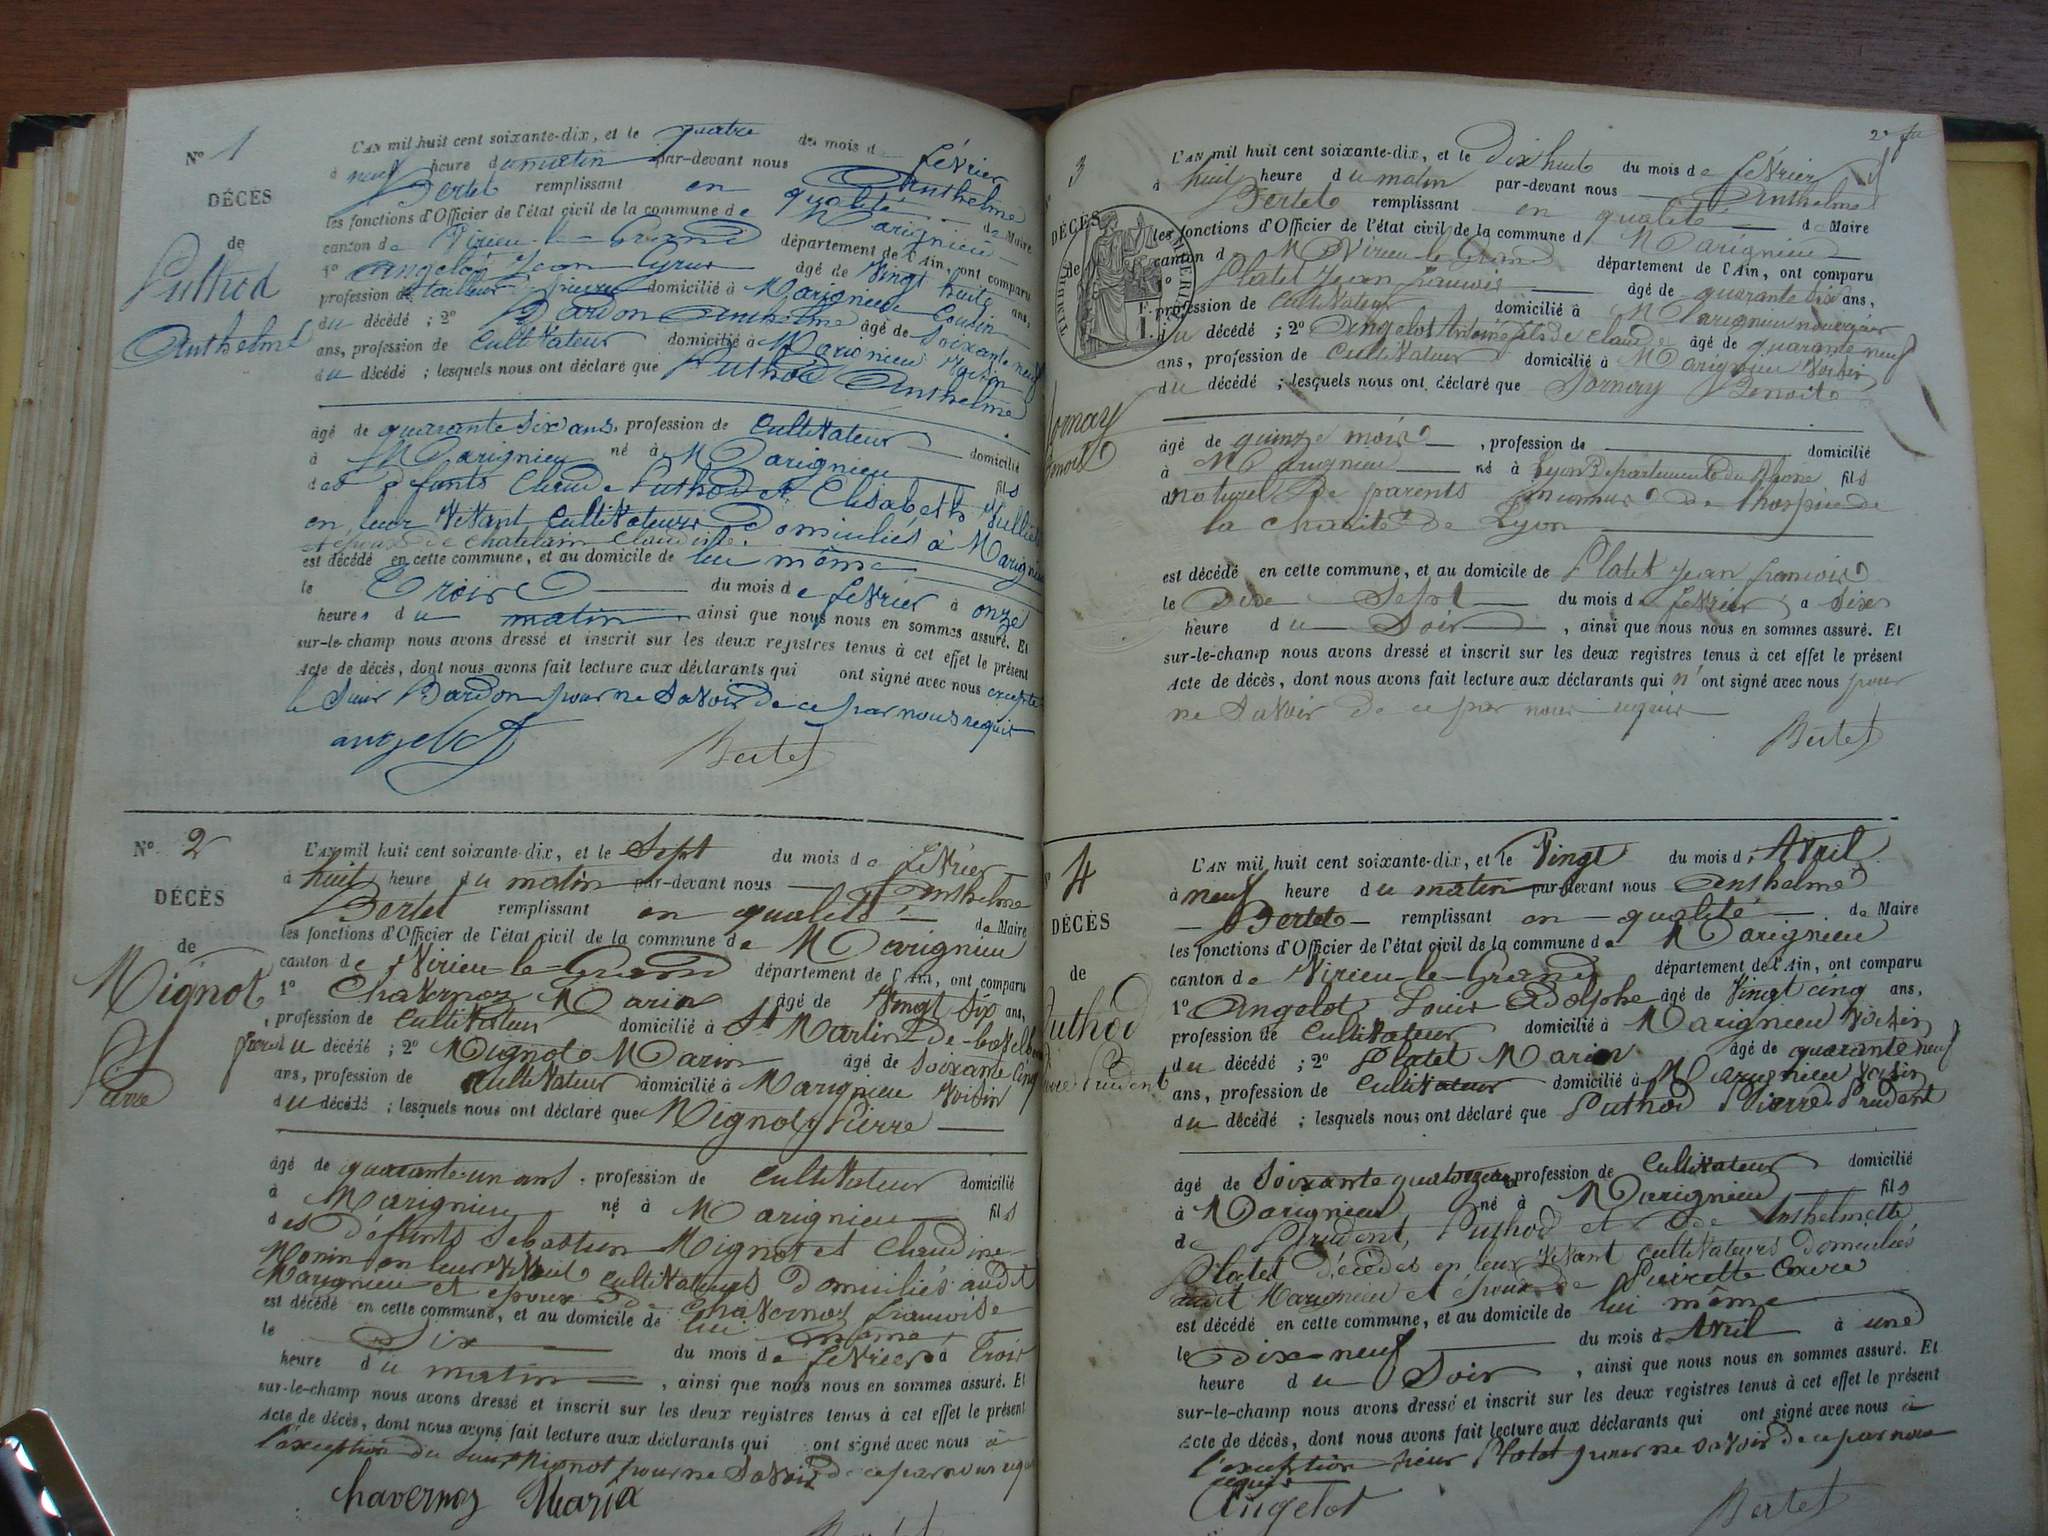 N° 1
DÉCÈS
de
Puthod
Anthelme
L'AN mil huit cent soixante-dix, et le quatre du mois de février
à neuf heure du matin par-devant nous Anthelme
Bertet remplissant en qualité de Maire
les fonctions d'Officier de l'état civil de la commune de Marignieu
canton de Virieu-le-Grand département de l'Ain, ont comparu
1° Angelot Jean Cyrus âgé de vingt huit ans,
profession de tailleur de pierre domicilié à Marignieu Cousin
du décédé ; 2° Bardon Anthelme âgé de Soixante neuf
ans, profession de Cultivateur domicilié à Marignieu Voisin
du décédé ; lesquels nous ont déclaré que Puthod Anthelme
âgé de quarante six ans, profession de Cultivateur domicilié
à Marignieu né à Marignieu fils
des défunts Claude Puthod et Elisabeth Vulliet
en leur vivant Cultivateurs Domiciliés à Marignieu
et époux de Chatelain Claudine.
est décédé en cette commune, et au domicile de lui même
le Trois du mois de février à onze
heures du matin ainsi que nous nous en sommes assuré. Et
sur-le-champ nous avons dressé et inscrit sur les deux registres tenus à cet effet le présent
Acte de décès, dont nous avons fait lecture aux déclarants qui ont signé avec nous excepté
le Sieur Bardon pour ne Savoir de ce par nous requis
angelot Bertet
N° 2
DÉCÈS
de
Mignot
Pierre
L'AN mil huit cent soixante-dix, et le Sept du mois de février
à huit heure du matin par-devant nous Anthelme
Bertet remplissant en qualité de Maire
les fonctions d'Officier de l'état civil de la commune de Marignieu
canton de Virieu-le-Grand département de l'Ain, ont comparu
1° Chavernoz Marin âgé de Vingt Six ans,
profession de Cultivateur domicilié à St Martin-de-bavel
du décédé ; 2° Mignot Marin âgé de Soixante Cinq
ans, profession de Cultivateur domicilié à Marignieu Voisin
du décédé ; lesquels nous ont déclaré que Mignot Pierre
âgé de quarante-un ans, profession de Cultivateur domicilié
à Marignieu né à Marignieu fils
des Défunts Sébastien Mignot et Claudine
Monin en leur vivant Cultivateurs Domiciliés audit
Marignieu et époux de Chavernoz francoise
est décédé en cette commune, et au domicile de lui même
le Six du mois de février à Trois
heure du matin, ainsi que nous nous en sommes assuré. Et
sur-le-champ nous avons dressé et inscrit sur les deux registres tenus à cet effet le présent
Acte de décès, dont nous avons fait lecture aux déclarants qui ont signé avec nous à
l'exception du Sieur Mignot pour ne Savoir de ce par nous requis
chavernoz Marin
2e
3
DÉCÈS
de
TIMBRE IMPÉRIAL
Sornay
Benoit
L'AN mil huit cent soixante-dix, et le Dix huit du mois de février
à huit heure du matin par-devant nous Anthelme
Bertet remplissant en qualité de Maire
les fonctions d'Officier de l'état civil de la commune d Marignieu
canton d Virieu-le-Grand département de l'Ain, ont comparu
Platet Jean francois âgé de quarante six ans,
profession de Cultivateur domicilié à Marignieu nourricier
du décédé ; 2° Angelot Antoine fils de Claude âgé de quarante neuf
ans, profession de Cultivateur domicilié à Marignieu Voisin
du décédé ; lesquels nous ont déclaré que Sornay Benoit
âgé de quinze mois, profession de domicilié
à Marignieu né à Lyon Département du Rhone fils
naturel De parents inconnus De l'hospice de
la Charité de Lyon
est décédé en cette commune, et au domicile de Platet Jean francois
le Dix Sept du mois de février à Six
heure du Soir, ainsi que nous nous en sommes assuré. Et
sur-le-champ nous avons dressé et inscrit sur les deux registres tenus à cet effet le présent
Acte de décès, dont nous avons fait lecture aux déclarants qui n'ont signé avec nous pour
ne Savoir de ce par nous requis
Bertet
4
DÉCÈS
de
Puthod
Pierre Prudent
L'AN mil huit cent soixante-dix, et le Vingt du mois d'Avril
à neuf heure du matin par-devant nous Anthelme
Bertet remplissant en qualité de Maire
les fonctions d'Officier de l'état civil de la commune de Marignieu
canton de Virieu-le-Grand département de l'Ain, ont comparu
1° Angelot Louis Adolphe âgé de Vingt cinq ans,
profession de Cultivateur domicilié à Marignieu Voisin
du décédé ; 2° Platet Marin âgé de quarante neuf
ans, profession de Cultivateur domicilié à Marignieu Voisin
du décédé ; lesquels nous ont déclaré que Puthod Pierre Prudent
âgé de Soixante quatorze ans, profession de Cultivateur domicilié
à Marignieu né à Marignieu fils
de Prudent Puthod et de Anthelmette
Platet Décédés en leur Vivant Cultivateurs Domiciliés
audit Marignieu et époux de Pierrette Cavre
est décédé en cette commune, et au domicile de lui même
le Dix-neuf du mois d'Avril à une
heure du Soir, ainsi que nous nous en sommes assuré. Et
sur-le-champ nous avons dressé et inscrit sur les deux registres tenus à cet effet le présent
Acte de décès, dont nous avons fait lecture aux déclarants qui ont signé avec nous à
l'exception sieur Platet pour ne Savoir de ce par nous
requis
Angelot Bertet